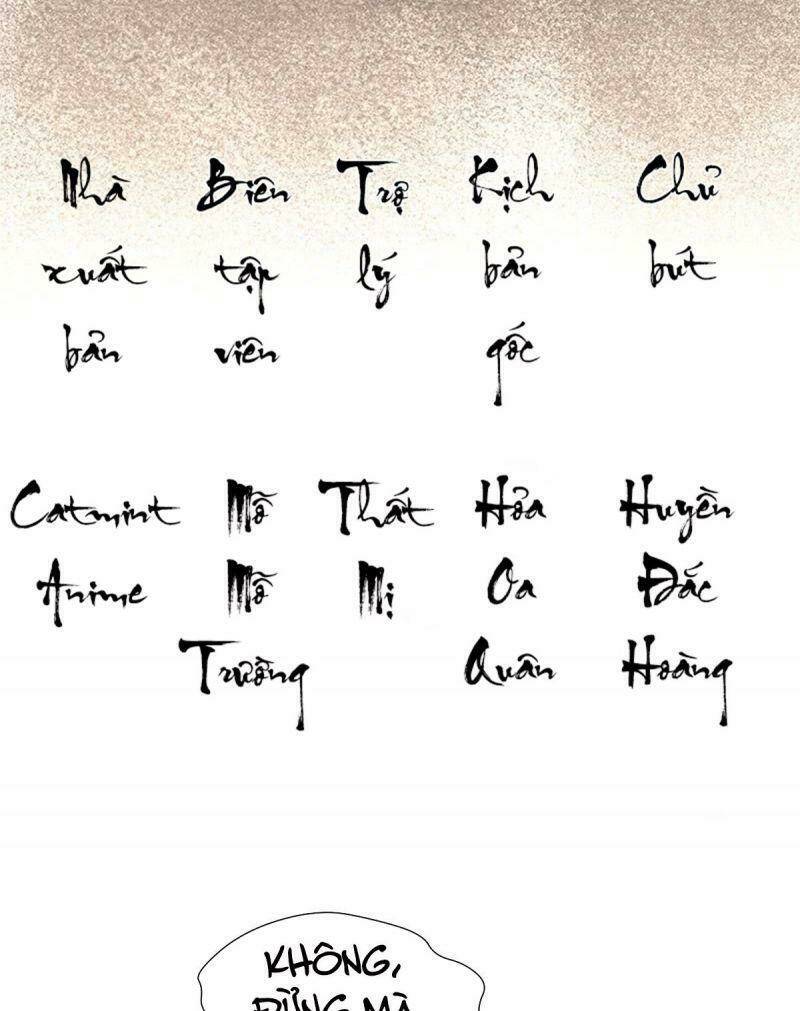 Nhà Biên Trợ Kịch Chủ
xuất tập lý bản bút
bản viên gốc
Catmint Mỗ Thất Hỏa Huyền
Anime Mỗ Mị Oa Đắc
Trường Quân Hoàng
KHÔNG,
ĐỪNG MÀ